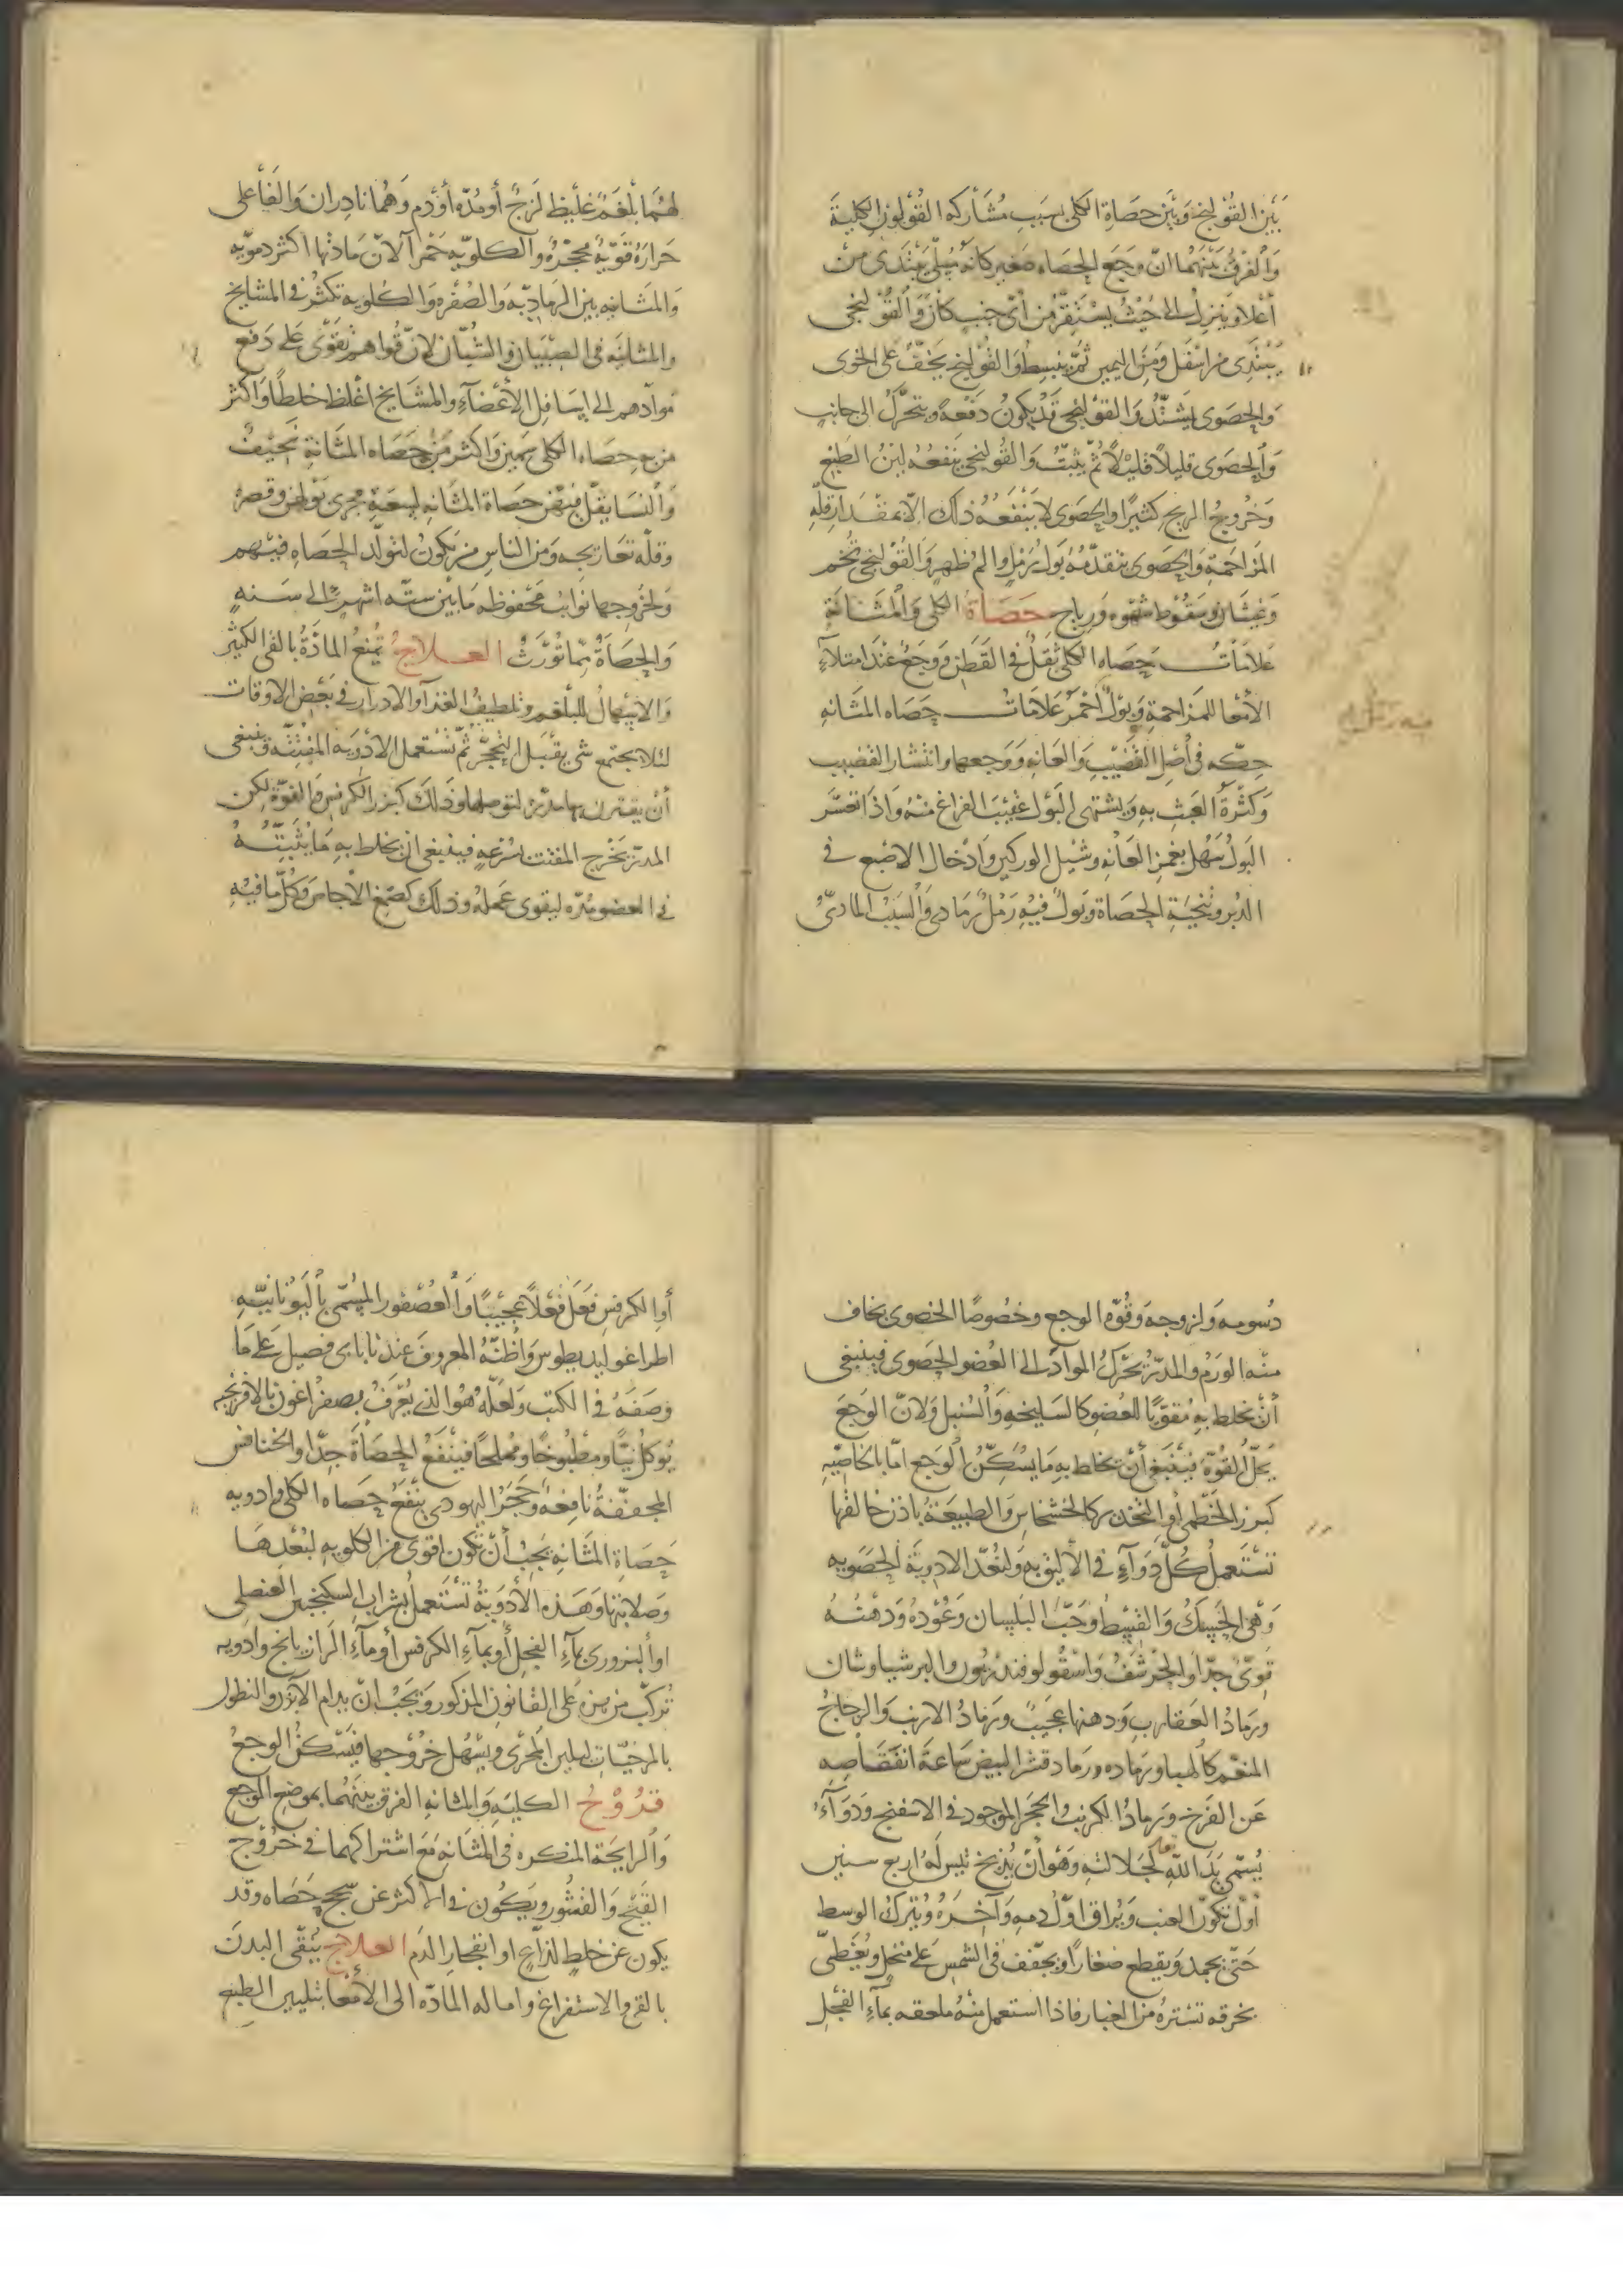 بَيْنَ القُوْلَنْجِ وَبَيْنَ حَصَاةِ الكُلى بسَبَبِ مُشَارَكه القُوْلُونِ الكليَةَ
وَالفَرقُ بَيْنَهُمَا انّ وَجَعَ الحَصَاه صَغير كانه سُلّى يَبْتَدى مِنْ
أَعْلا وَيَنزلُ الى حَيْثُ يسْتَقِرُّ مِن أىّ جنب كَانَ وَالقُوْلنجى
يَبْتَدِى مِن اسْفَل وَمِنَ اليمين ثُمَّ ينبسِطُ وَالقُوْلنجى يَخِفّ على الخوى
وَالحصَوى يَشتَدُّ وَالقوْلنجى قَدْ يكونُ دَفْعَةً ويتحَرَّكُ الى جانبٍ
وَالحصَوى قَليْلاً قَليْلاً ثُمّ يَثبتُ وَالقُولنجى يَنفعُه لينُ الطَبْع
وَخُرُوجُ الريحِ كثيرًا والحصَوى لا يَنْفَعهُ ذلك الّا بمقْدَار قِلّهِ
المزَاحَمَةِ وَالحصَوى يَتقدّمُهُ بَولُ رَمْلٍ والمُ ظهرٍ وَالقُوْلنجى تُخَم
وَغَثَيَان وسَقُوط شهْوه وَرياح حَصَاةُ الكلى وَالمَثَانَةِ
عَلامَاتُ حَصَاه الكلى ثِقلٌ فى القَطَنِ وَوَجَعٌ عنْدَ امتِلاءِ
الأمعَا للمزَاحمَةِ وَبَوْلٌ أَحْمَرُ عَلامَاتُ حَصَاه المثَانهِ
حِكّه فى أَصْلِ القَضيْبِ وَالعَانهِ وَوَجعها وانْتشار القَضيب
وَكثْرَةُ العَبَثِ بهِ وَيشتهى البَوْلَ عَقيْبَ الفَراغ منْهُ وَاذا تعَسَّر
البَولُ سَهُل بغمزِ العَانهِ وشَيْل الوركين وَادْخَال الاصْبع فى
الدُبر وتنحيَةِ الحصَاة وَبَولٌ فيْهِ رَمْلٌ رَمَادى وَالسَبَبُ المادىّ
لهُمَا بَلْغَمٌ غَلْيظ لَزِجٌ أَو مدّه أَوْ دَم وَهُمَا نادِران وَالفَاعلى
حَرارَةٌ قَوّيةٌ مُحَجِّرَةٌ وَالكلويّه حَمْرآ لانّ مَادتها اكثر دمويّه
وَالمَثَانيه بين الرمَاديّه وَالصُفْره وَالكُلويه تكثُر فى المشَايخ
والمثانيه فى الصبْيَان وَالشبّان لانّ قُواهُم تَقْوَى عَلى دَفْع
موَادّهم الى اسَافل الأعْضَاءِ وَالمشَايخ اغْلظ خلطًا وَاكثَر
من بهِ حصَاه الكلى سَمين وَاكثر مَن بهِ حَصَاه المثَانةِ نَحيْفٌ
وَالنسَا يقلّ فيهنَّ حصَاة المثَانهِ لسعَة مجرى بَوْلهن وَقصره
وقلّه تعَاريجه وَمن الناسِ مَن يكُونُ لتوَلّد الحصَاهِ فيْهم
وَلخروجهَا نوَائبُ محْفوظه مَا بَيْن ستّه اشهرٍ الى سَنه
وَالحصَاةُ ممّا تُورَّثُ العلاج تُمنَعُ المادّةُ بالقى الكثير
وَالاسْهَالُ للبَلغم وتلطيفُ الغذآ وَالادرَار فى بعْض الاوقات
لئلا يجتمع شى يَقْبَل التحَجُّر ثمّ تُستعمل الادْويه المفَتِّتَه وَينبغى
أنْ يقترن بها مُدِرٌّ لتوصلها وذلكَ كبزر الكرفسِ وَالفوّة لكن
المدرّ يخْرج المفتت بسُرعهٍ فينبغى ان يخلط به مَا يُثبّتُهُ
فى العضو مُدّه ليقوى عَملهُ وذلك كصَمْغ الاجاص وَكُلّ مَا فيْهِ
دُسومه وَلزوجه وَقُوّه الوجع وخصُوصًا الحصَوى يخاف
منْه الورَم وَالمدرّ يُحَرّكُ الموَادّ الى العُضو الحصَوى فينبغى
أَنْ يخلط بهِ مُقوّيًا للعُضو كالسَليخه وَالسُنبل وَلانّ الوَجَعَ
يَحُلُّ القُوّة فينْبَغى أنْ يخلط بهِ مَا يُسَكّن الوَجع امّا بالخاصّيّه
كبزر الخطْمى أوْ التخدير كالخشخاش وَالطبيعَةُ باذن خالقها
تَسْتَعملُ كُلّ دَوَآءٍ فى الأليَق بهِ وَلنَعُدّ الادويَة الحصَويه
وَهى الحَسَكُ وَ وَحَبّ البَلسان وَعُوْدُهُ وَدهْنُهُ
قوىّ جدًّا وَالحَرْشَفُ وَاسْقُولوفندريُون وَالبرشياوشان
ورَمَادُ العَقارب وَدهنها عَجيبٌ وَرَمَادُ الارنب وَالزجاجُ
المنعّم كالهبا ورمَاده ورَماد قشر البيض سَاعةَ انفقَاصه
عَن الفَرخ ورَمادُ الكرنب وَالحجر الموجود فى الاسفنج وَدَوَآءٌ
يُسَمّى يَدَ اللهِ لجَلالتهِ وَهُو أَنْ يُذبح تيس لَهُ اربع سنين
أَوّلَ تكوّن العنب وَيُراق اوّلُ دمهِ وَآخرُهُ وَيُترك الوسط
حَتّى يجمد وَيقطع صغارًا ويجفف فى الشمْس عَلى منخلٍ وَيغَطّى
بخرقه تسْترهُ منَ الغبار فاذا استعمل منْهُ ملعقه بمآءِ الفجْلِ
أو الكرفس فَعَل فعْلاً عَجيْبًا وَالعُصْفور المُسمّى باليُونَانيّه
اطراغوليديطوس وَاظنّهُ المعروف عندنا على مَا
وَصَفَهُ فى الكتب وَلعَلّهُ هُوَ الذى يُعْرَفُ بصفراغون بالافرنجيه
يُوكلُ نيًّا ومَطْبُوخًا وَمُملّحًا فينْفعُ الحصَاةَ جدًّا وَالخنافس
المجَفّفَةُ نافعَهٌ وَحَجَرُ اليهودى ينْفَعُ حصَاه الكلى وَادويه
حَصَاة المثَانهِ يَجبُ أنْ تكون اقوى مِن الكلويه لبُعْدهَا
وَصلابتها وَهَذهِ الأدْويَةُ تُستَعملُ بشَراب السكنجبين العنصلى
اوالبزورى بمآءِ الفجلِ أو بمآءِ الكرفس أو مآءِ الرازيانج وادويه
تركّب من هذه عَلى القانون المذكور وَيجبُ انْ يدام الابزن والنطول
بالمرخيّات ليلين المجْرَى وَيسْهُل خُرُوجهَا فيَسْكنُ الوجعُ
قُرُوْحُ الكليَهِ وَالمثَانهِ الفرق بيْنَهُمَا بموضِع الوجع
وَالرايحة المنكره فى المثَانهِ مَع اشتراكهمَا فى خُرُوج
القَيْحِ وَالقشُور ويَكُون فى الاكثر عن سَحج حَصَاه وَقد
يكون عن خلطٍ لذّاعٍ او انفجار الدَم العلاج يُنَقّى البدن
بالقى والاستفراغ واماله المَادّه الى الأمعَا بتليين الطبع